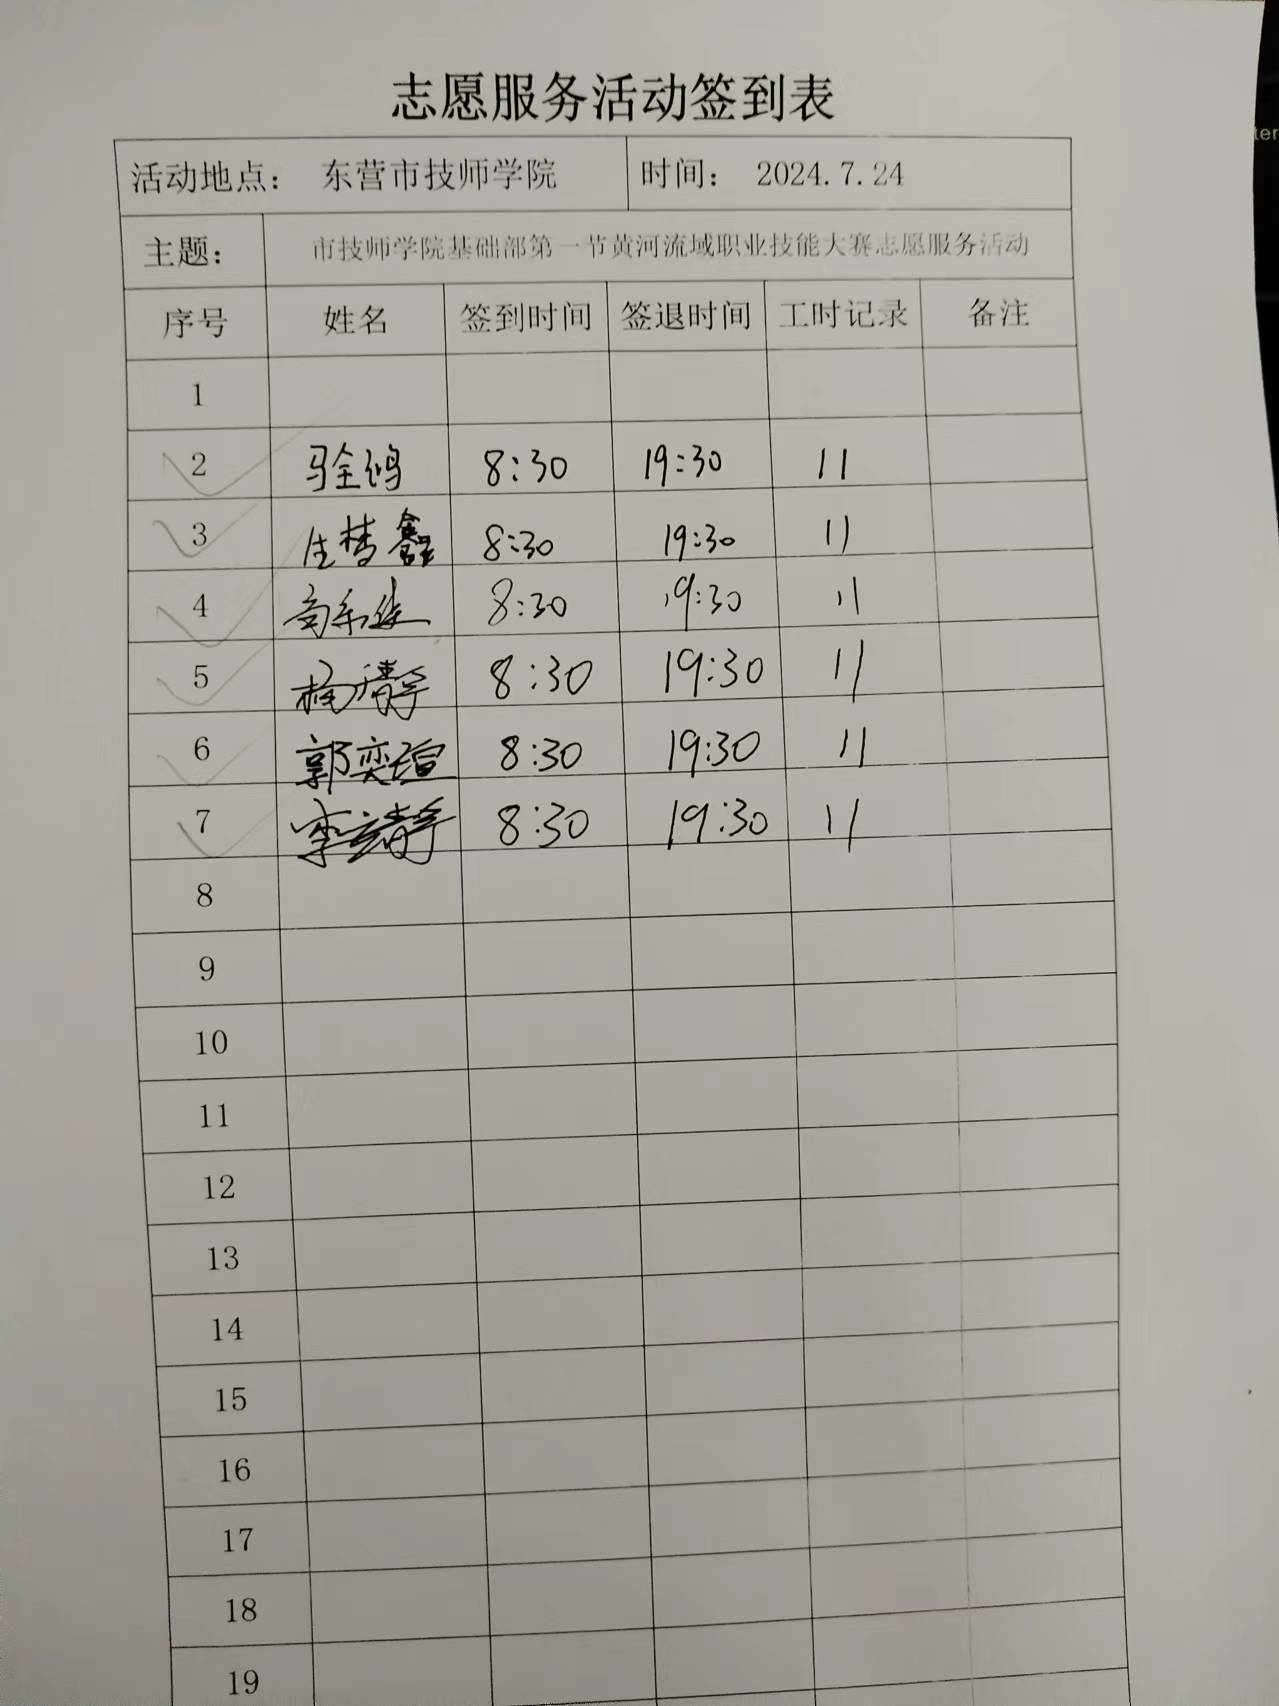 ter
志愿服务活动签到表
活动地点： 东营市技师学院 时间： 2024.7.24
主题： 市技师学院基础部第一节黄河流域职业技能大赛志愿服务活动
序号 姓名 签到时间 签退时间 工时记录 备注
1
2 8:30 19:30 11
3 8:30 19:30 11
4 8:30 19:30 11
5 8:30 19:30 11
6 郭奕瑄 8:30 19:30 11
7 8:30 19:30 11
8
9
10
11
12
13
14
15
16
17
18
19